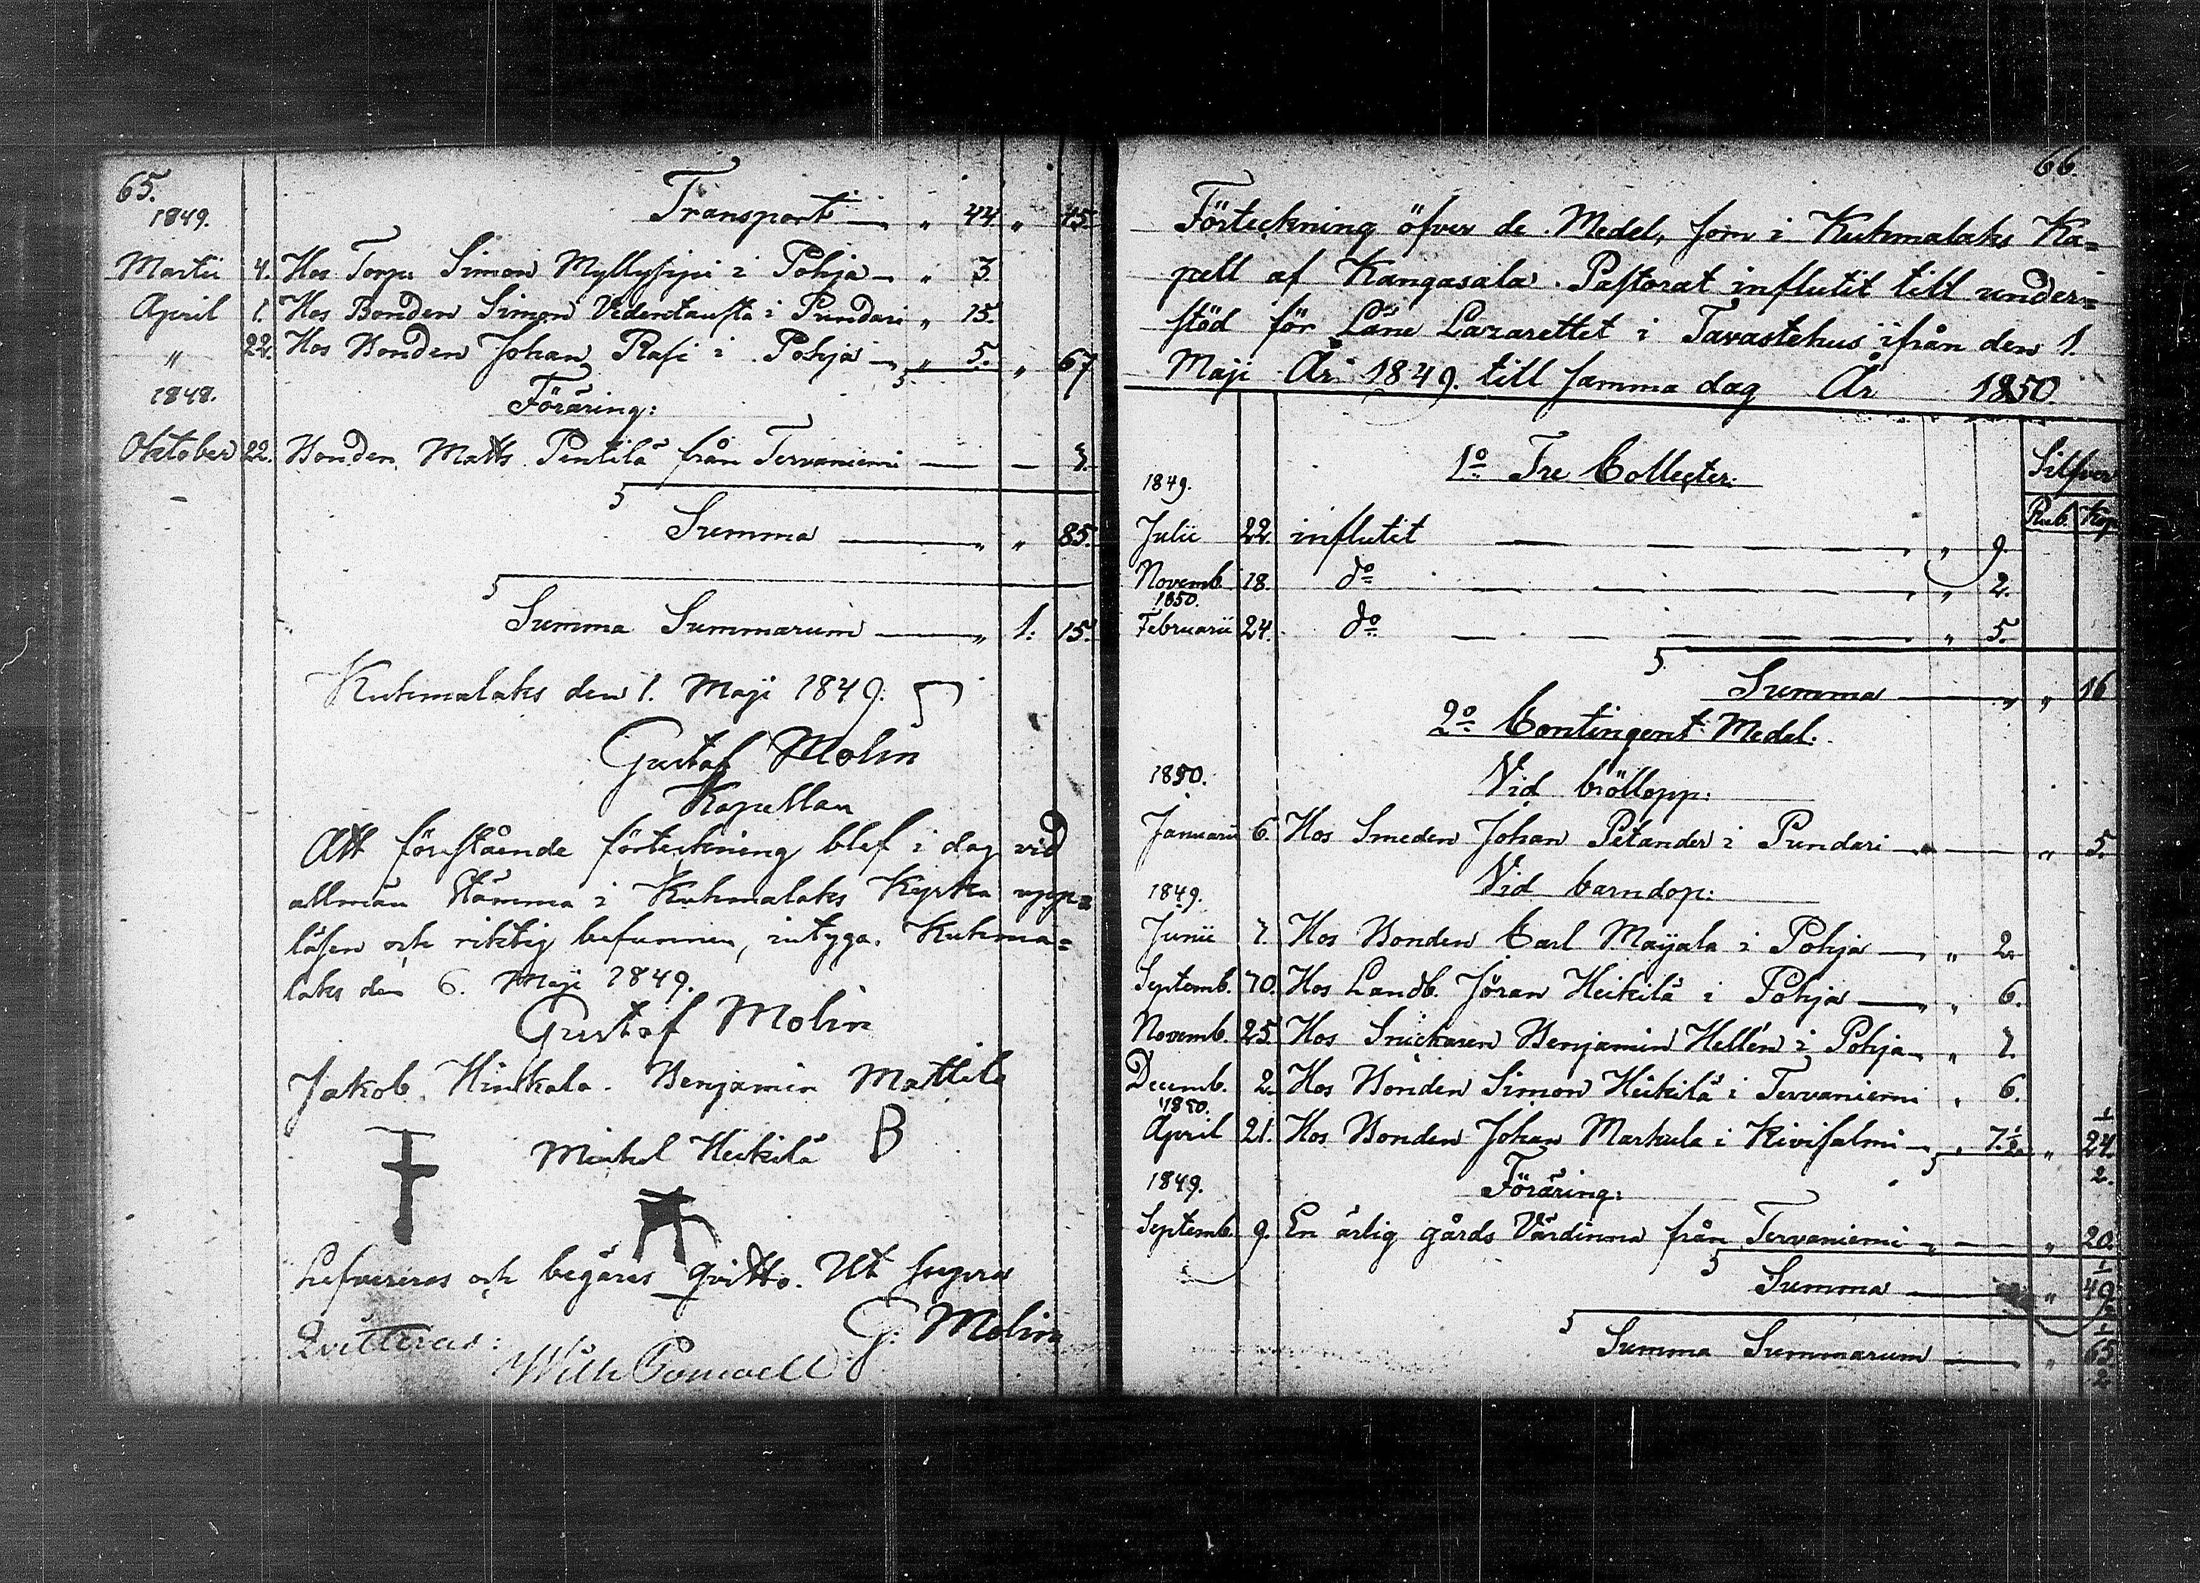 65.
1849. Transport — " 44. " 15.
Martii 4. Hos Torpu Simon Myllysipi i Pohja — " 3
April 1. Hos Bonden Simon Vedentausta i Pundari " 15.
" 22. Hos Bonden Johan Rasi i Pohja — " 5. " 67
1848. Föräring:
Oktober 22. Bonden Matts Pentilä från Tervaniemi — — 3.
Summa — " " 85.
Summa Summarum — " 1. 15.
Kuhmalaks den 1. Maji 1849.
Gustaf Molin
Kapellan
Att förestående förteckning blef i dag vid
allmän stämma i Kuhmalaks Kyrka upp=
läsen och riktig befunnen, intyga. Kuhma=
laks den 6. Maji 1849.
Gustaf Molin
Jakob Hinkala. Benjamin Mattila
B
Mickel Heikilä
Lefvereras och begäres qvitto. Ut supra
G. Molin
Qvitteras:
66.
Förteckning öfver de Medel, som i Kuhmalaks Ka=
pell af Kangasala Pastorat influtit till under=
stöd för Läne Lazarettet i Tavastehus ifrån den 1.
Maji År 1849. till samma dag År 1850.
Silfver
1849. 1º Tre Collecter.
Rub. Kop.
Julii 22. influtit — " 9.
Novemb. 18. dº — " 2.
1850.
Februarii 24. dº — " 5.
Summa — " " 16
2º Contingent Medel.
1850. Vid bröllopp:
Januarii 6. Hos Smeden Johan Petander i Pundari — " 5.
1849. Vid barndop:
Junii 7. Hos Bonden Carl Maijala i Pohja — " 2
Septemb. 10. Hos Landb. Jöran Heikilä i Pohja — " 6.
Novemb. 25. Hos Snickaren Benjamin Hellén i Pohja — " 7.
Decemb. 2. Hos Bonden Simon Heikilä i Tervaniemi " 6.
1850.
April 21. Hos Bonden Johan Markula i Kivisalmi — " 3.½ " 24.½
1849. Föräring:
Septemb. 9. En ärlig gårds Värdinna från Tervaniemi " — " 20.
Summa — " 49½
Summa Summarum — " 65½